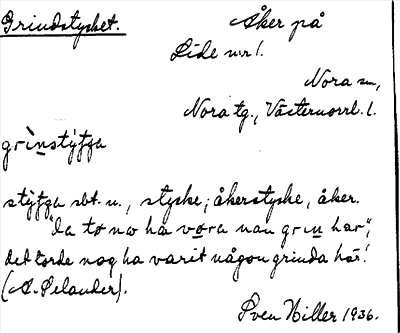 Grindstycket. Åker på
Lide nr 1.
Nora sn,
Nora tg., Västernorrl. l.
grìnstýʃʃa
stýʃʃa sbt. n., stycke; åkerstycke, åker.
"Da to no ha vora nan grin har",
det torde nog ha varit någon grinda här!
(A. Pelander).
Sven Hiller 1936.